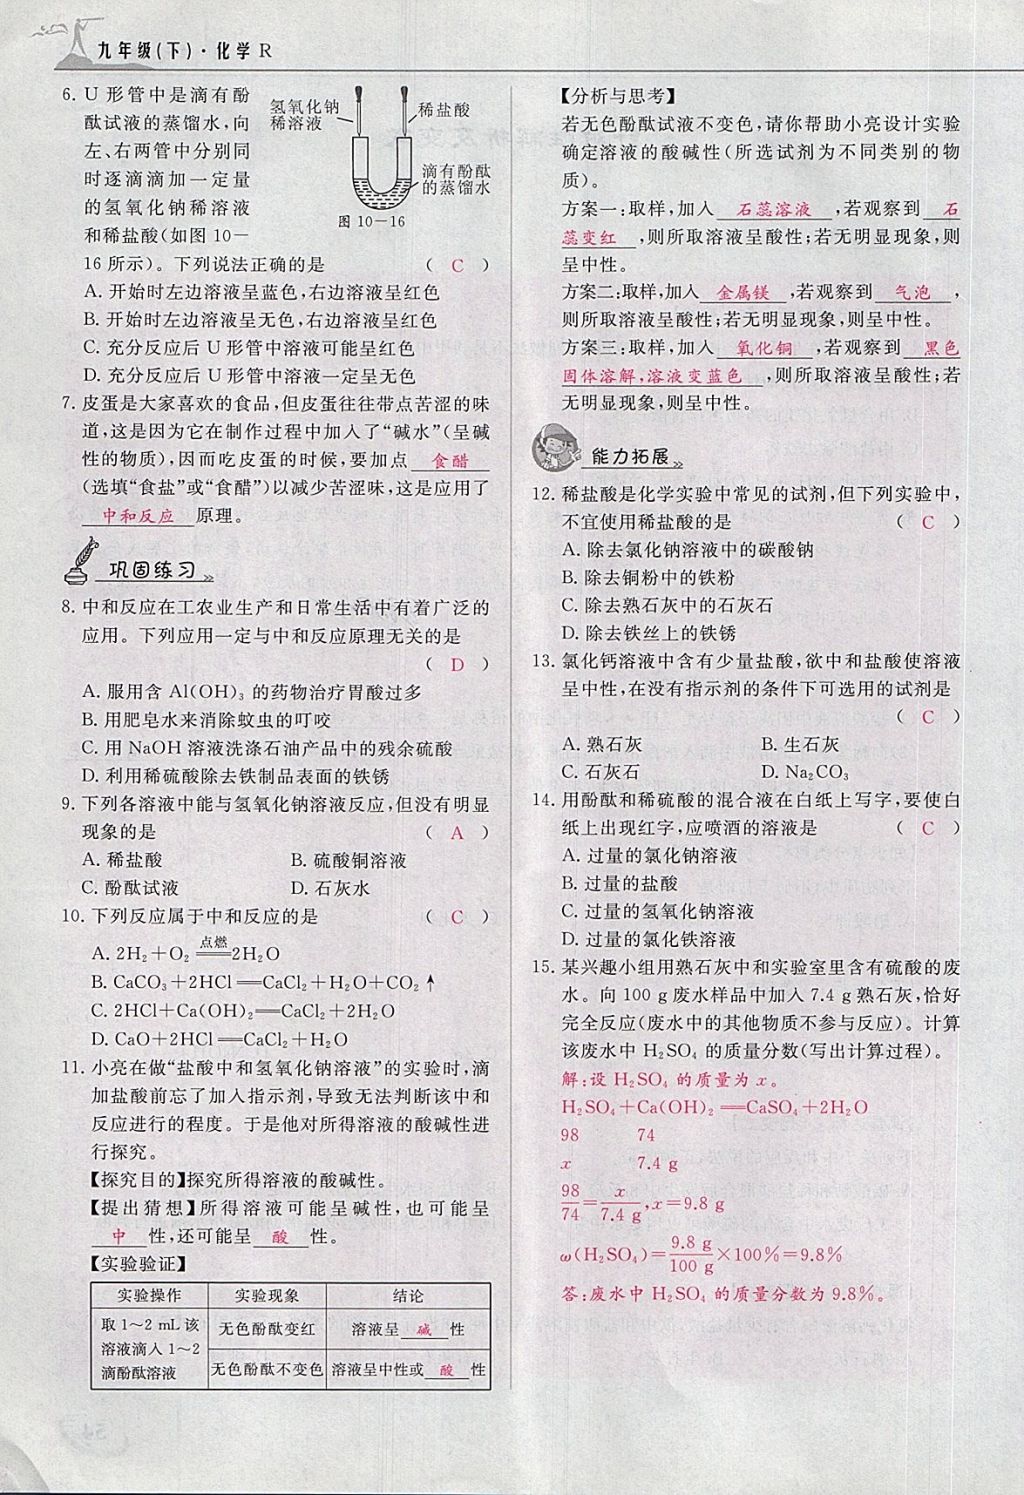 九年级(下)·化学 R
6. U 形管中是滴有酚
酞试液的蒸馏水,向
左、右两管中分别同
时逐滴滴加一定量
的氢氧化钠稀溶液
和稀盐酸(如图 10-
16 所示)。下列说法正确的是 ( C )
氢氧化钠
稀溶液
稀盐酸
滴有酚酞
的蒸馏水
图 10-16
A. 开始时左边溶液呈蓝色,右边溶液呈红色
B. 开始时左边溶液呈无色,右边溶液呈红色
C. 充分反应后 U 形管中溶液可能呈红色
D. 充分反应后 U 形管中溶液一定呈无色
7. 皮蛋是大家喜欢的食品,但皮蛋往往带点苦涩的味
道,这是因为它在制作过程中加入了“碱水”(呈碱
性的物质),因而吃皮蛋的时候,要加点 食醋
(选填“食盐”或“食醋”)以减少苦涩味,这是应用了
中和反应 原理。
巩固练习
8. 中和反应在工农业生产和日常生活中有着广泛的
应用。下列应用一定与中和反应原理无关的是
( D )
A. 服用含 Al(OH)₃ 的药物治疗胃酸过多
B. 用肥皂水来消除蚊虫的叮咬
C. 用 NaOH 溶液洗涤石油产品中的残余硫酸
D. 利用稀硫酸除去铁制品表面的铁锈
9. 下列各溶液中能与氢氧化钠溶液反应,但没有明显
现象的是 ( A )
A. 稀盐酸 B. 硫酸铜溶液
C. 酚酞试液 D. 石灰水
10. 下列反应属于中和反应的是 ( C )
A. 2H₂+O₂ 点燃══ 2H₂O
B. CaCO₃+2HCl══CaCl₂+H₂O+CO₂↑
C. 2HCl+Ca(OH)₂══CaCl₂+2H₂O
D. CaO+2HCl══CaCl₂+H₂O
11. 小亮在做“盐酸中和氢氧化钠溶液”的实验时,滴
加盐酸前忘了加入指示剂,导致无法判断该中和
反应进行的程度。于是他对所得溶液的酸碱性进
行探究。
【探究目的】探究所得溶液的酸碱性。
【提出猜想】所得溶液可能呈碱性,也可能呈
中 性,还可能呈 酸 性。
【实验验证】
实验操作 实验现象 结论
取 1~2 mL 该
溶液滴入 1~2
滴酚酞溶液
无色酚酞变红 溶液呈 碱 性
无色酚酞不变色 溶液呈中性或 酸 性
【分析与思考】
若无色酚酞试液不变色,请你帮助小亮设计实验
确定溶液的酸碱性(所选试剂为不同类别的物
质)。
方案一:取样,加入 石蕊溶液 ,若观察到 石
蕊变红 ,则所取溶液呈酸性;若无明显现象,则
呈中性。
方案二:取样,加入 金属镁 ,若观察到 气泡 ,
则所取溶液呈酸性;若无明显现象,则呈中性。
方案三:取样,加入 氧化铜 ,若观察到 黑色
固体溶解,溶液变蓝色 ,则所取溶液呈酸性;若
无明显现象,则呈中性。
能力拓展
12. 稀盐酸是化学实验中常见的试剂,但下列实验中,
不宜使用稀盐酸的是 ( C )
A. 除去氯化钠溶液中的碳酸钠
B. 除去铜粉中的铁粉
C. 除去熟石灰中的石灰石
D. 除去铁丝上的铁锈
13. 氯化钙溶液中含有少量盐酸,欲中和盐酸使溶液
呈中性,在没有指示剂的条件下可选用的试剂是
( C )
A. 熟石灰 B. 生石灰
C. 石灰石 D. Na₂CO₃
14. 用酚酞和稀硫酸的混合液在白纸上写字,要使白
纸上出现红字,应喷洒的溶液是 ( C )
A. 过量的氯化钠溶液
B. 过量的盐酸
C. 过量的氢氧化钠溶液
D. 过量的氯化铁溶液
15. 某兴趣小组用熟石灰中和实验室里含有硫酸的废
水。向 100 g 废水样品中加入 7.4 g 熟石灰,恰好
完全反应(废水中的其他物质不参与反应)。计算
该废水中 H₂SO₄ 的质量分数(写出计算过程)。
解:设 H₂SO₄ 的质量为 x。
H₂SO₄+Ca(OH)₂══CaSO₄+2H₂O
98 74
x 7.4 g
98/74=x/7.4 g,x=9.8 g
ω(H₂SO₄)=9.8 g/100 g×100%=9.8%
答:废水中 H₂SO₄ 的质量分数为 9.8%。